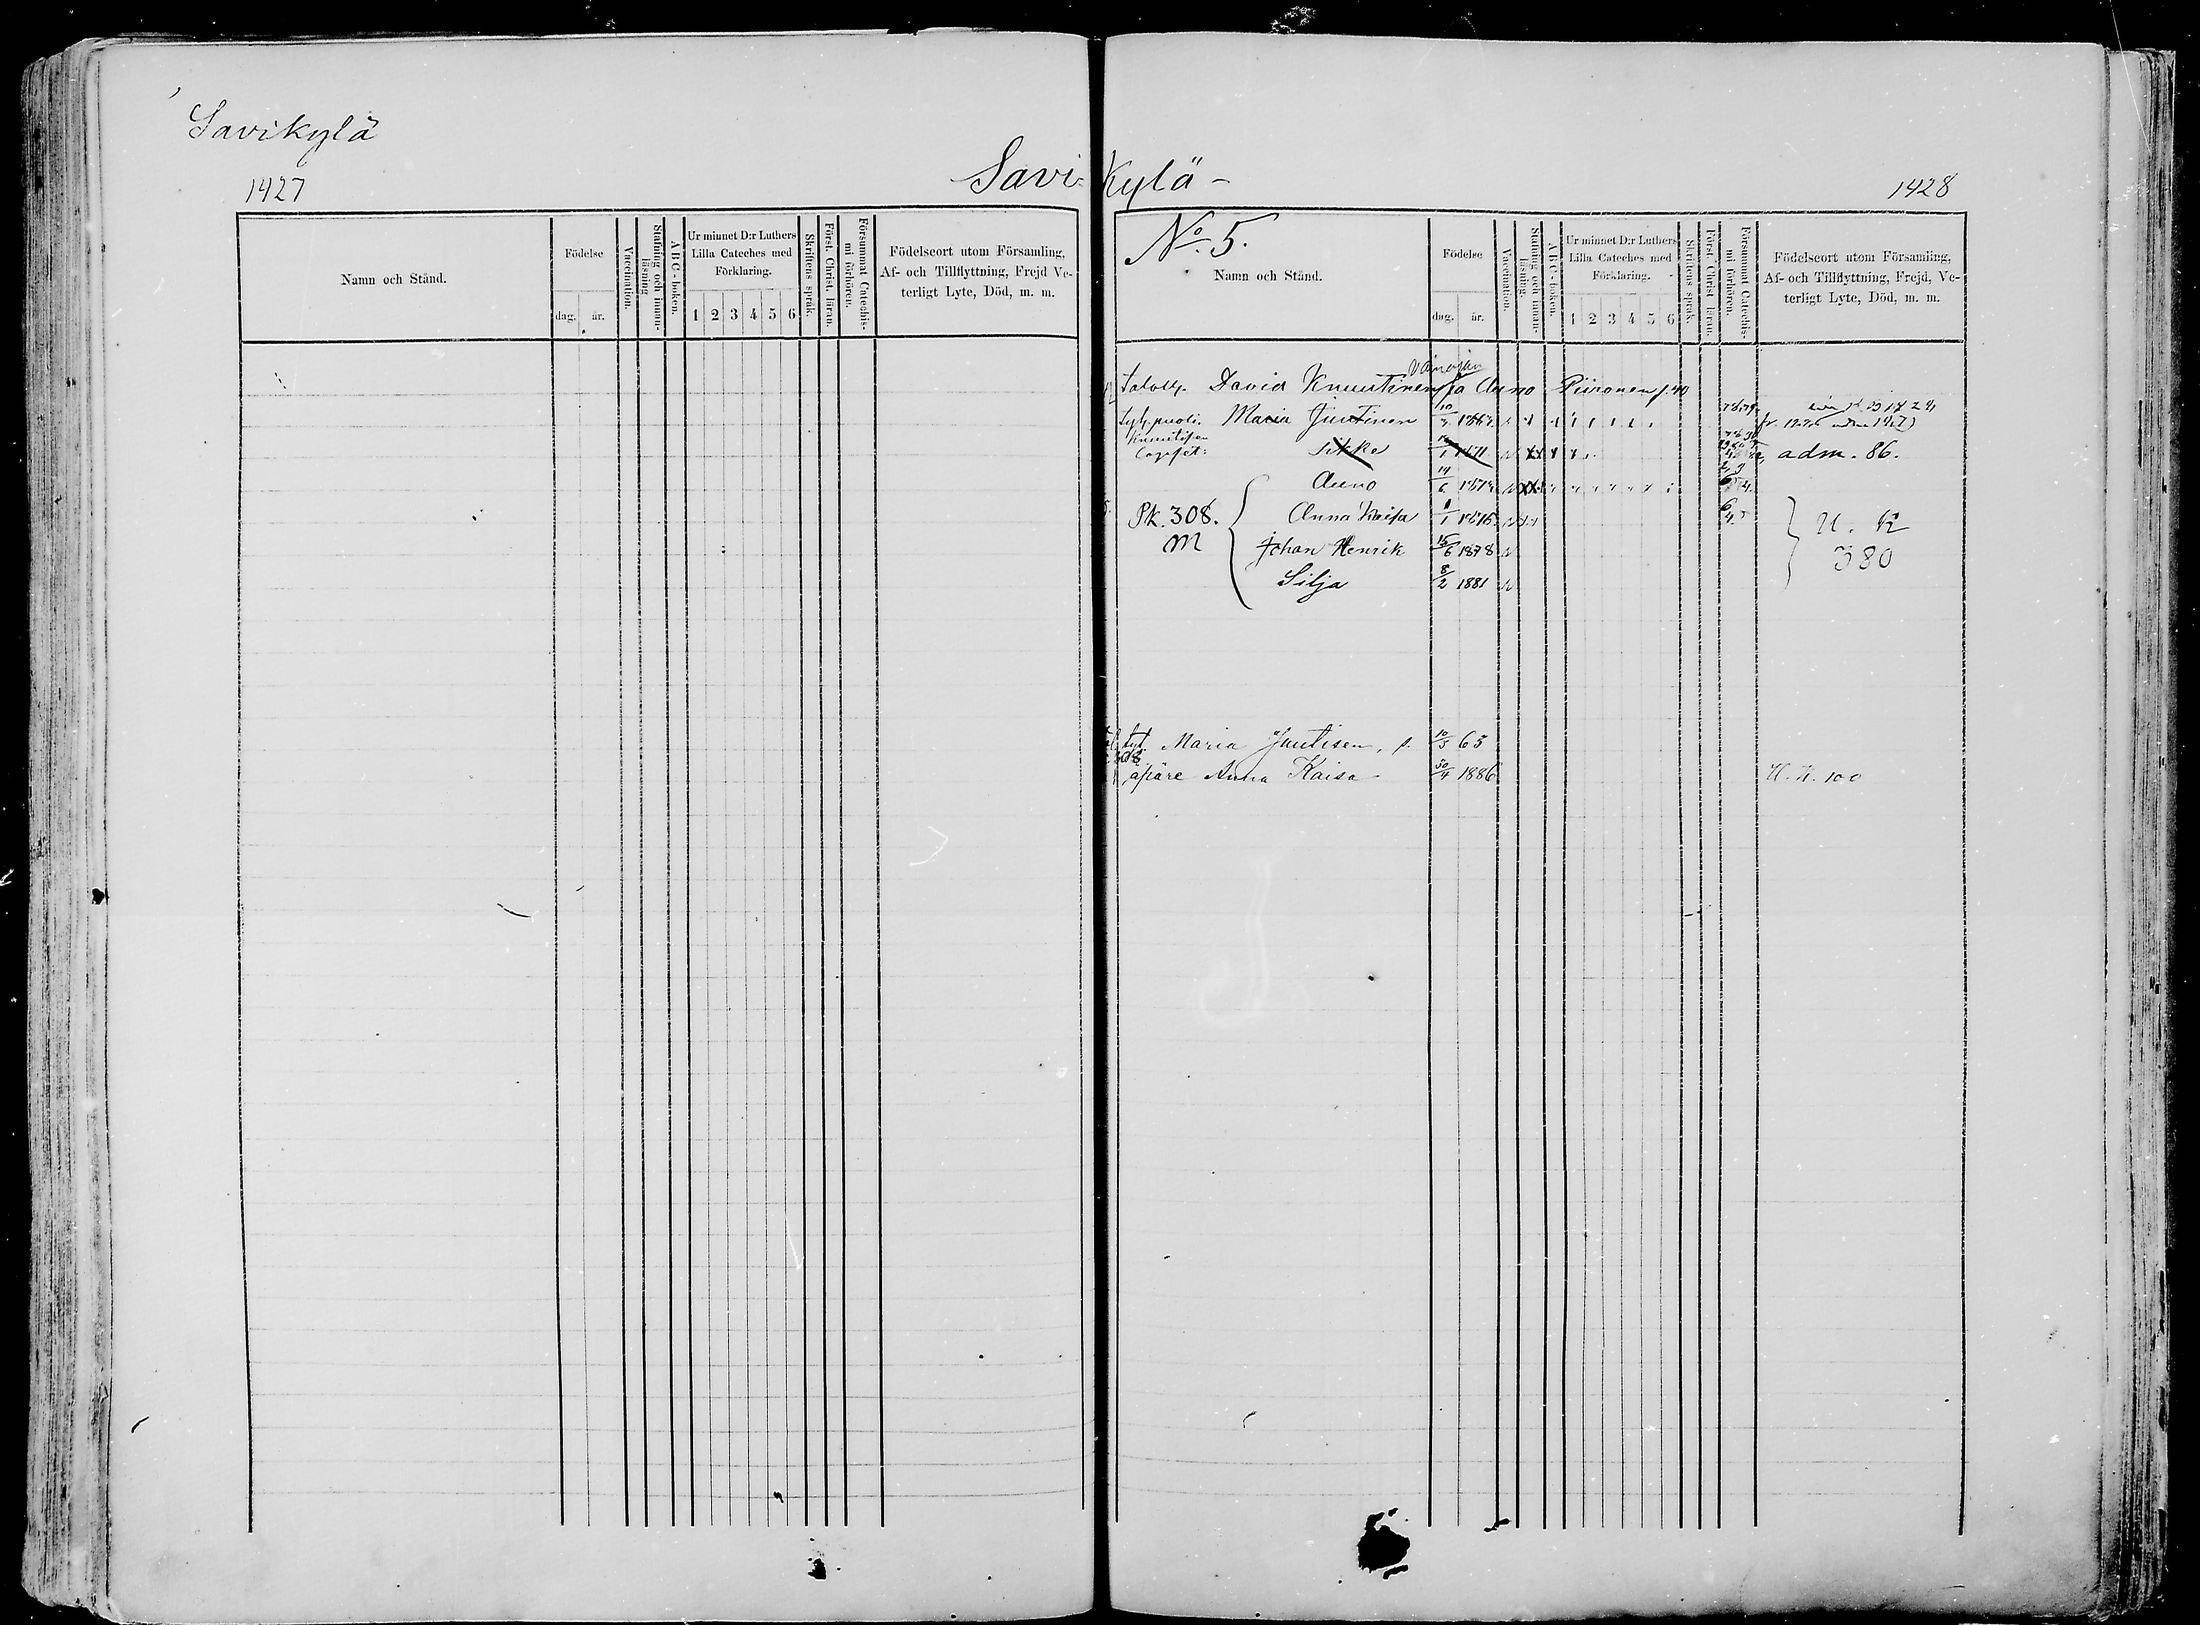 Savikylä
1427
Savi-
Namn och Stånd.
Födelse
dag.
år.
Vaccination.
Stafning och innan-
läsning
A B C-boken.
Ur minnet D:r Luthers
Lilla Cateches med
Förklaring.
1 2 3 4 5 6
Skriftens språk.
Först. Christ. läran.
Försummat Catechis-
mi förhören.
Födelseort utom Församling,
Af- och Tillflyttning, Frejd Ve-
terligt Lyte, Död, m. m.
Kylä-
1428
No 5.
Namn och Stånd.
Födelse
dag.
år.
Vaccination.
Stafning och innan-
läsning.
A B C-boken.
Ur minnet D:r Luthers
Lilla Cateches med
Förklaring.
1 2 3 4 5 6
Skriftens språk.
Först. Christ läran.
Försummat Catechis-
mi förhören.
Födelseort utom Församling,
Af- och Tillflyttning, Frejd, Ve-
terligt Lyte, Död, m. m.
David Knuutinen ja Auno Piironen
Maria Juutinen
adm. 86.
Auno
Pk. 308. Anna Kaisa
M Johan Henrik 15/6 1878
U. K
380
Silja 8/2 1881
Maria Juutisen, 10/5 65
äpäre Anna Kaisa 30/4 1886 U. K. 100